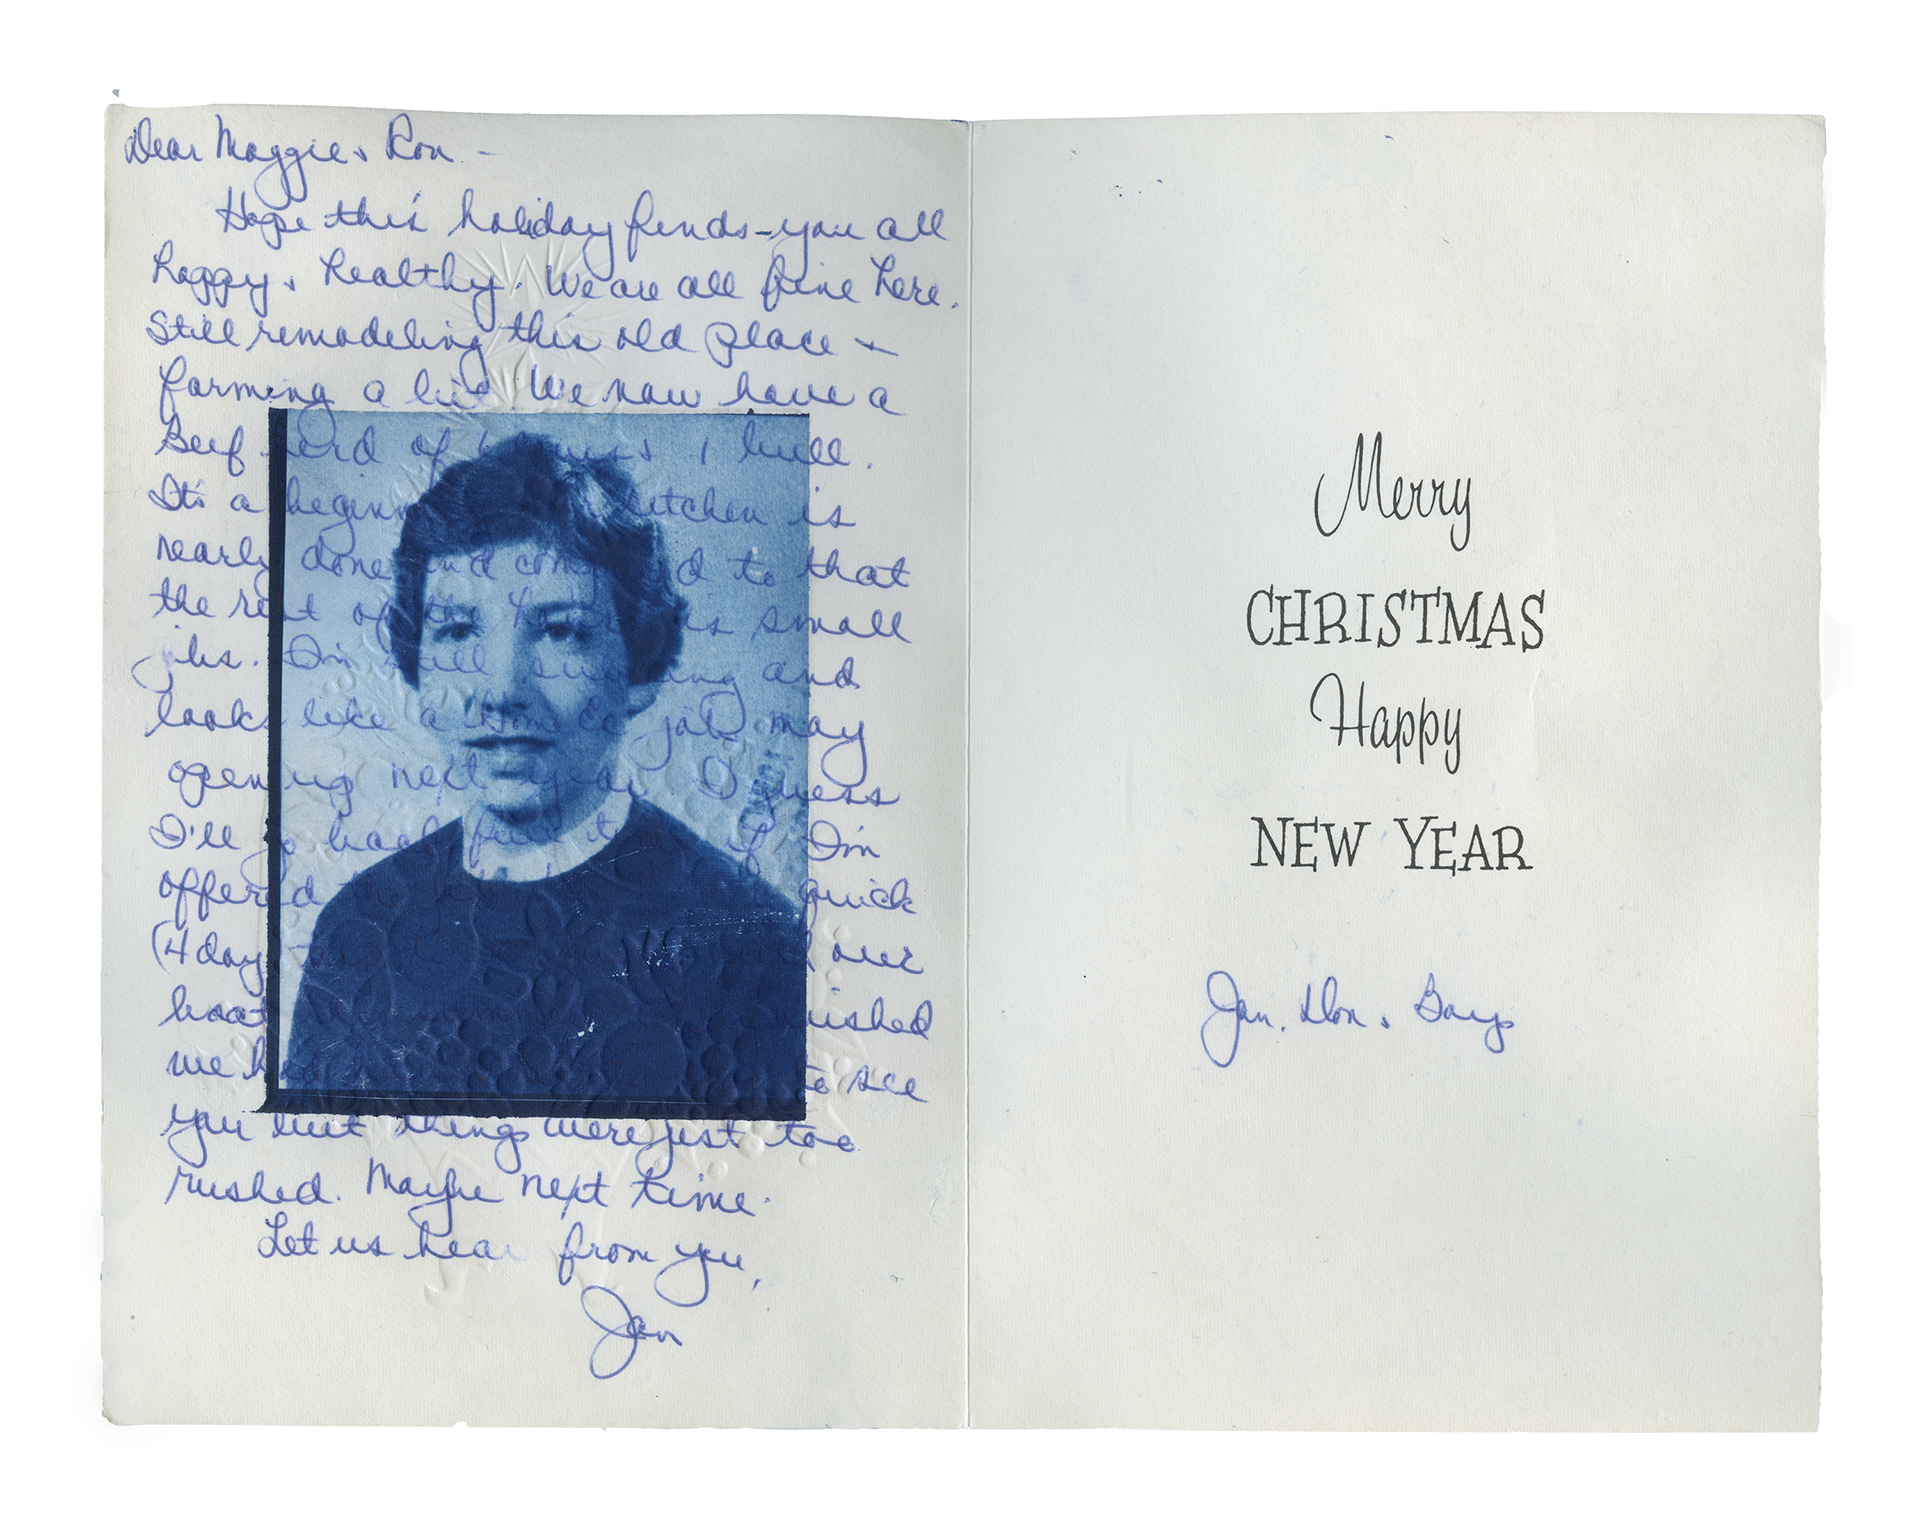 Dear Maggie & Ron -
Hope this holiday finds you all
happy & healthy. We are all fine here.
Still remodeling this old place &
farming a bit. We now have a
Beef herd of 6 cows & 1 bull.
It's a beginning kitchen is
nearly done and compared to that
the rest of the house is small
jobs. I'm still subbing and
looks like a Home Ec job may
open up next year. I guess
I'll go back full time if I'm
offered quick
(4 day our
boat
we had to see
you but things were just too
rushed. Maybe next time.
Let us hear from you,
Jan
Merry
CHRISTMAS
Happy
NEW YEAR
Jan, Don & Boys